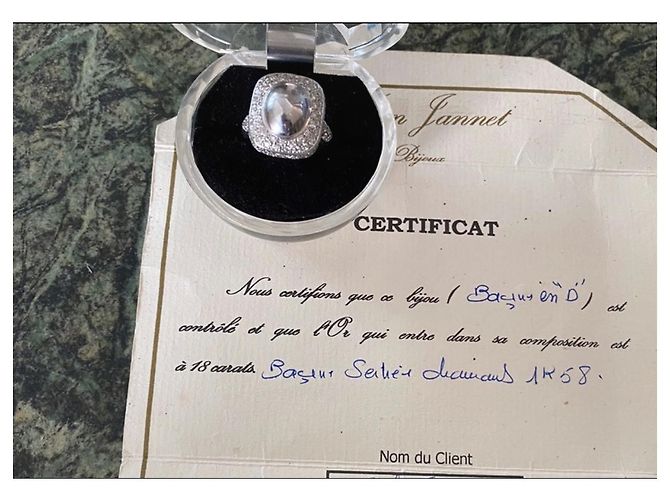 n Jannet
Bijoux
CERTIFICAT
Nous certifions que ce bijou ( en "D" ) est
contrôlé et que l'Or qui entre dans sa composition est
à 18 carats. diamants 1K58.
Nom du Client